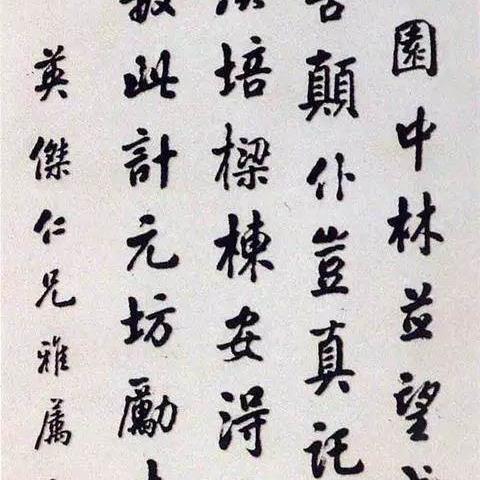 園中林並望
顛仆豈真託
培樑棟安得
此計元坊勵
英傑仁兄雅屬